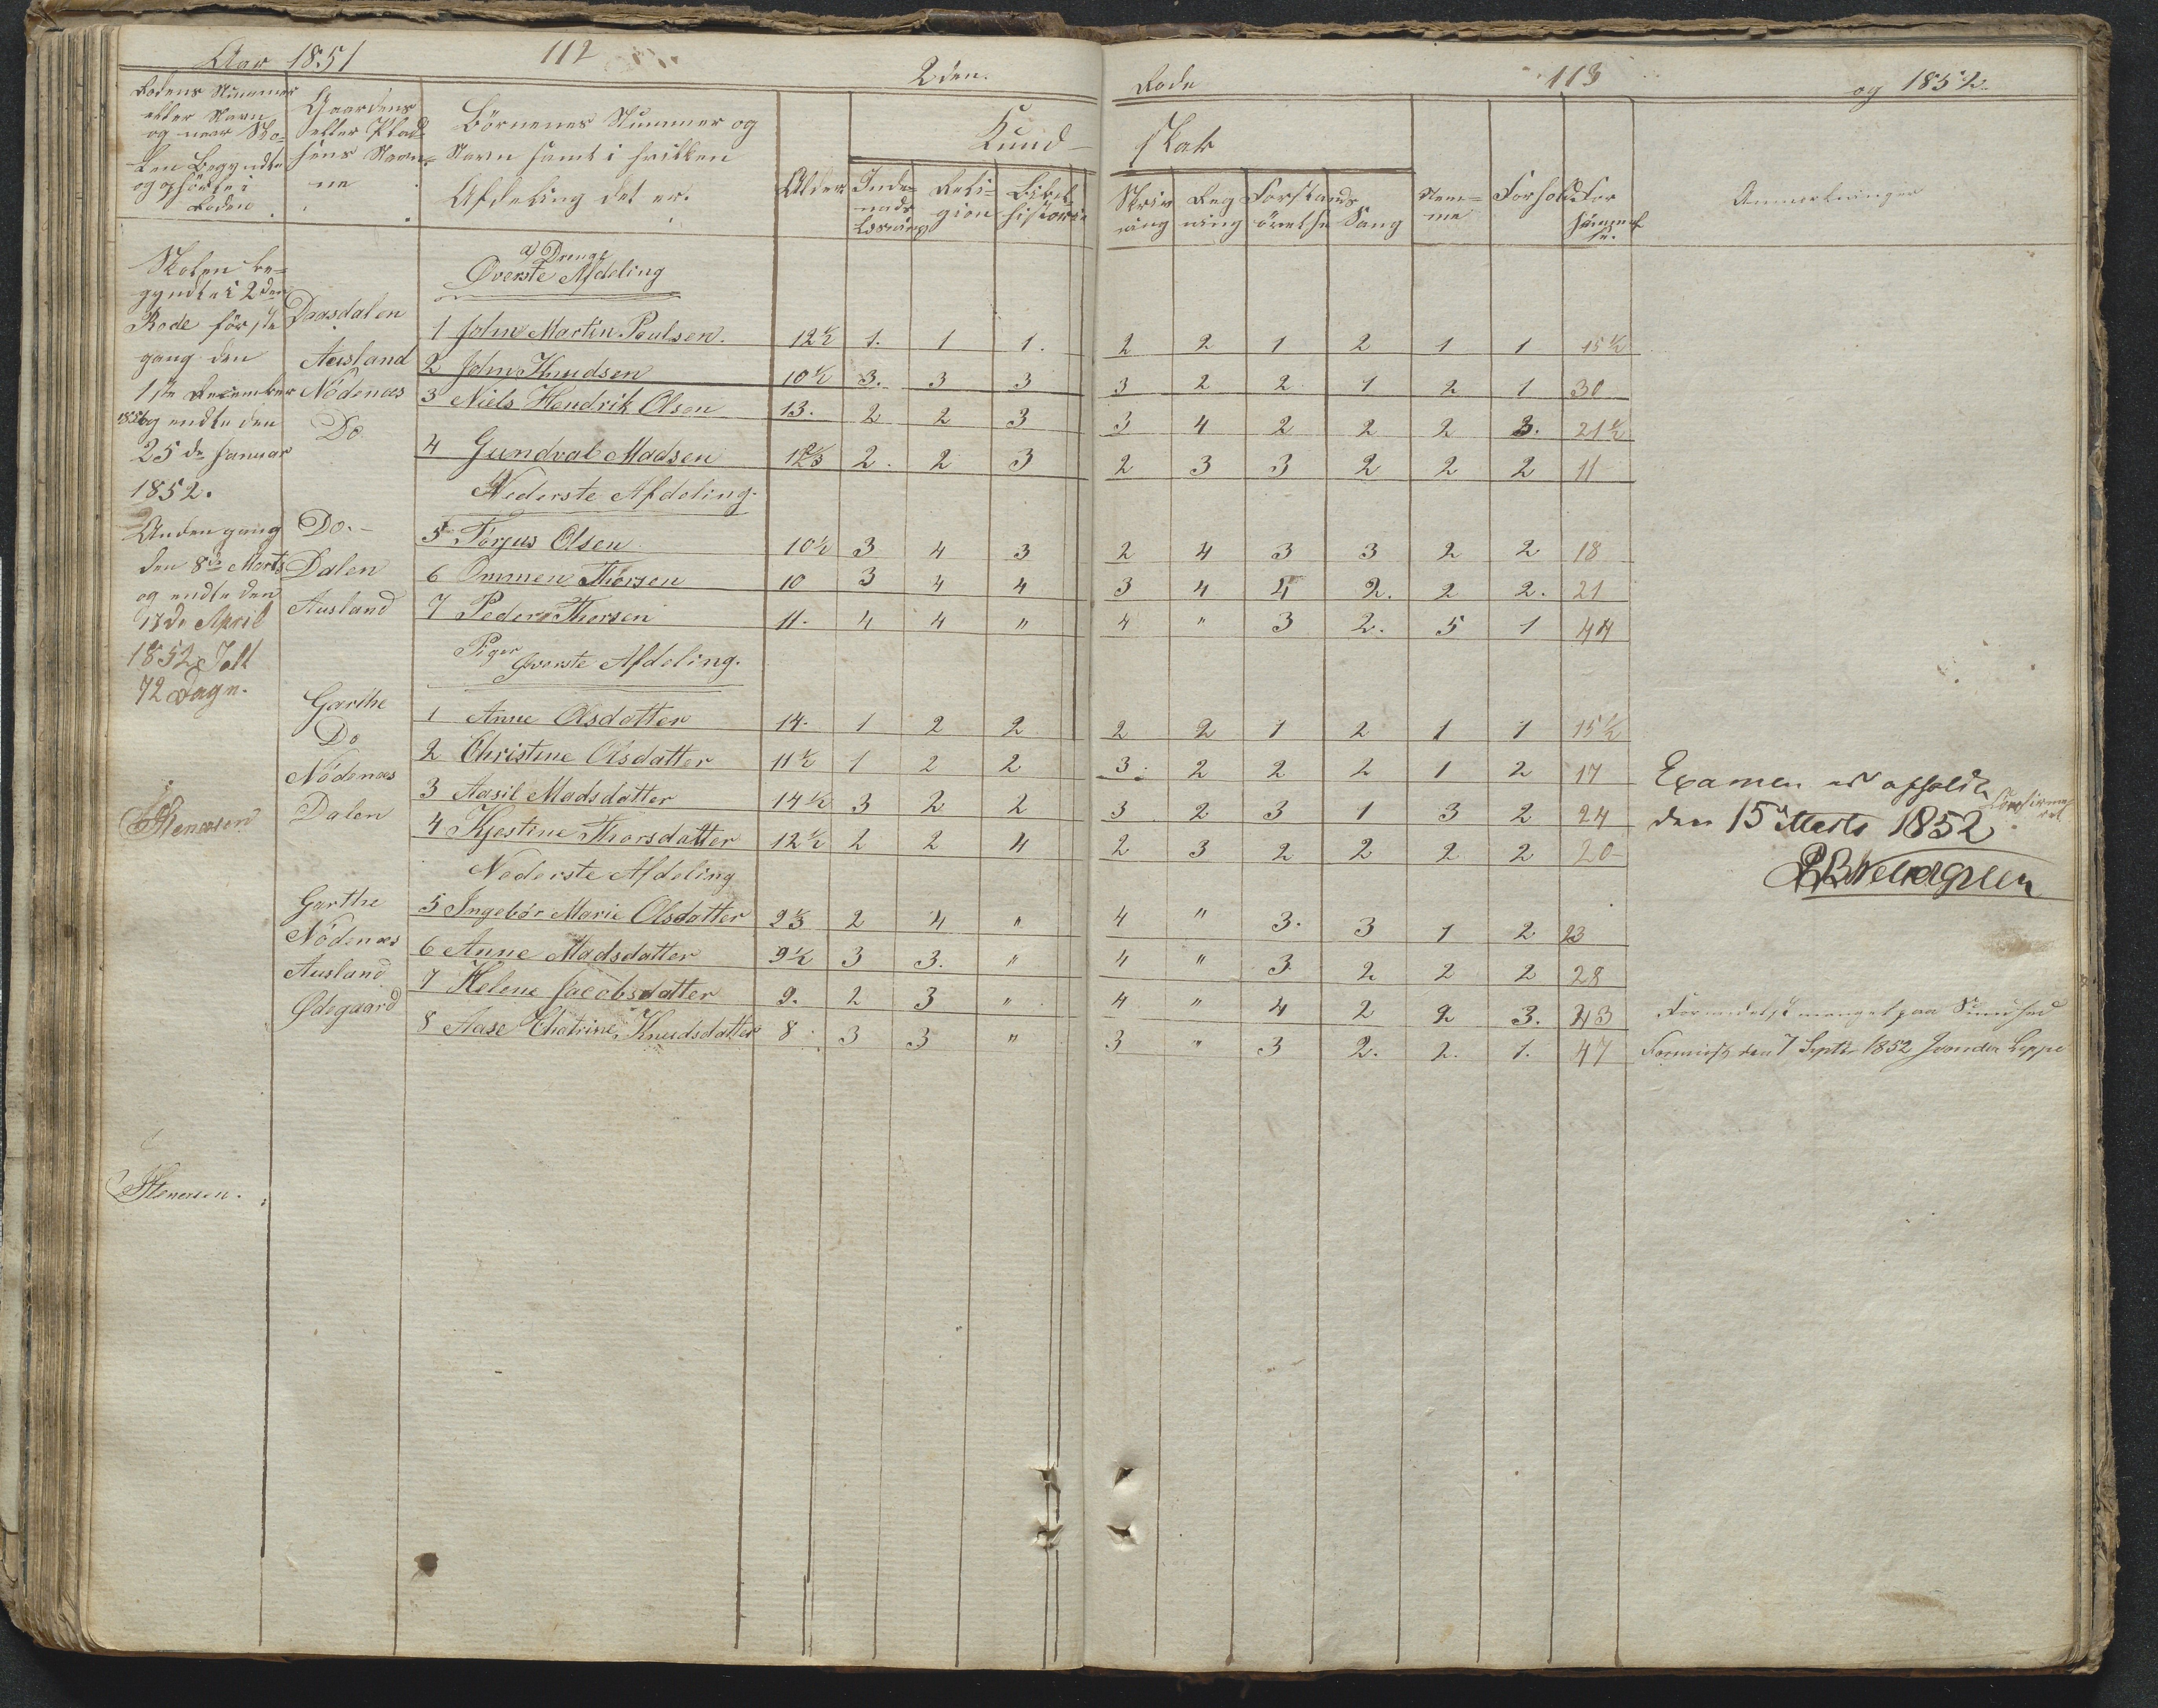 Aar 1851
112
2den.
Rodens Nummer
eller Navn
og naar Sko-
len begyndte
og ophørte i
Roden
Gaardens
eller Plad-
sens Navn-
ne
Börnenes Nummer og
Navn samt i hvilken
Afdeling det er.
Alder
Kund-
Inde-
nads
Læsning
Reli-
gion
Bibel-
historie
Skolen be-
gyndte i 2den
Rode förste
gang den
1ste December
1851 og endte den
25de Januar
1852.
Anden gang
den 8de Marts
og endte den
17de April
1852 I alt
72 Dage.
Stenersen
Stenersen.
a) Drenge
Överste Afdeling
Daasdalen 1 John Martin Paulsen. 12½ 1. 1 1.
Ausland 2 John Knudsen 10½ 3. 3 3
Nödenæs 3 Niels Hendrik Olsen 13. 2 2 3
Do 4 Gundval Madsen 12⅔ 2. 2 3
Nederste Afdeling.
Do.- 5 Torjus Olsen 10½ 3 4 3
Dalen 6 Ommen Thorsen 10 3 4 4
Ausland 7 Peder Thorsen 11. 4 4 "
Piger
Överste Afdeling.
Garthe 1 Anne Olsdatter 14. 1 2 2
Do 2 Christine Olsdatter 11½ 1 2 2
Nödenæs 3 Aasil Madsdatter 14½ 3 2 2
Dalen 4 Kjestine Thorsdatter 12½ 2 2 4
Nederste Afdeling
Garthe 5 Ingebör Marie Olsdatter 9⅓ 2 4 "
Nödenæs 6 Anne Madsdatter 9½ 3 3. "
Ausland 7 Helene Jacobsdatter 9. 2 3 "
Ödegaard 8 Aase Chatrine Knudsdatter 8 3 3 "
Rode
113
og 1852.
skab
Skriv
ning
Reg
ning
Forstands
övelse
Sang
Nem-
me
Forhold
For
sömmel
se.
Anmerkninger
2 2 1 2 1 1 15½
3 2 2 1 2 1 30
3 4 2 2 2 3. 21½
2 3 3 2 2 2 11
2 4 3 3 2 2 18
3 4 4 2. 2 2. 21
4 " 3 2. 5 1 44
2 2 1 2 1 1 15½
3. 2 2 2 1 2 17
3 2 3 1 3 2 24
2 3 2 2 2 2 20
4 " 3. 3 1 2 23
4 " 3 2 2 2 28
4 " 4 2 2 3. 43
3 " 3 2. 2. 1. 47
Examen er afholdt
den 15de Marts 1852.
Confirme-
ret
Formedelst mangel paa Sundhed
den 7 Septbr 1852